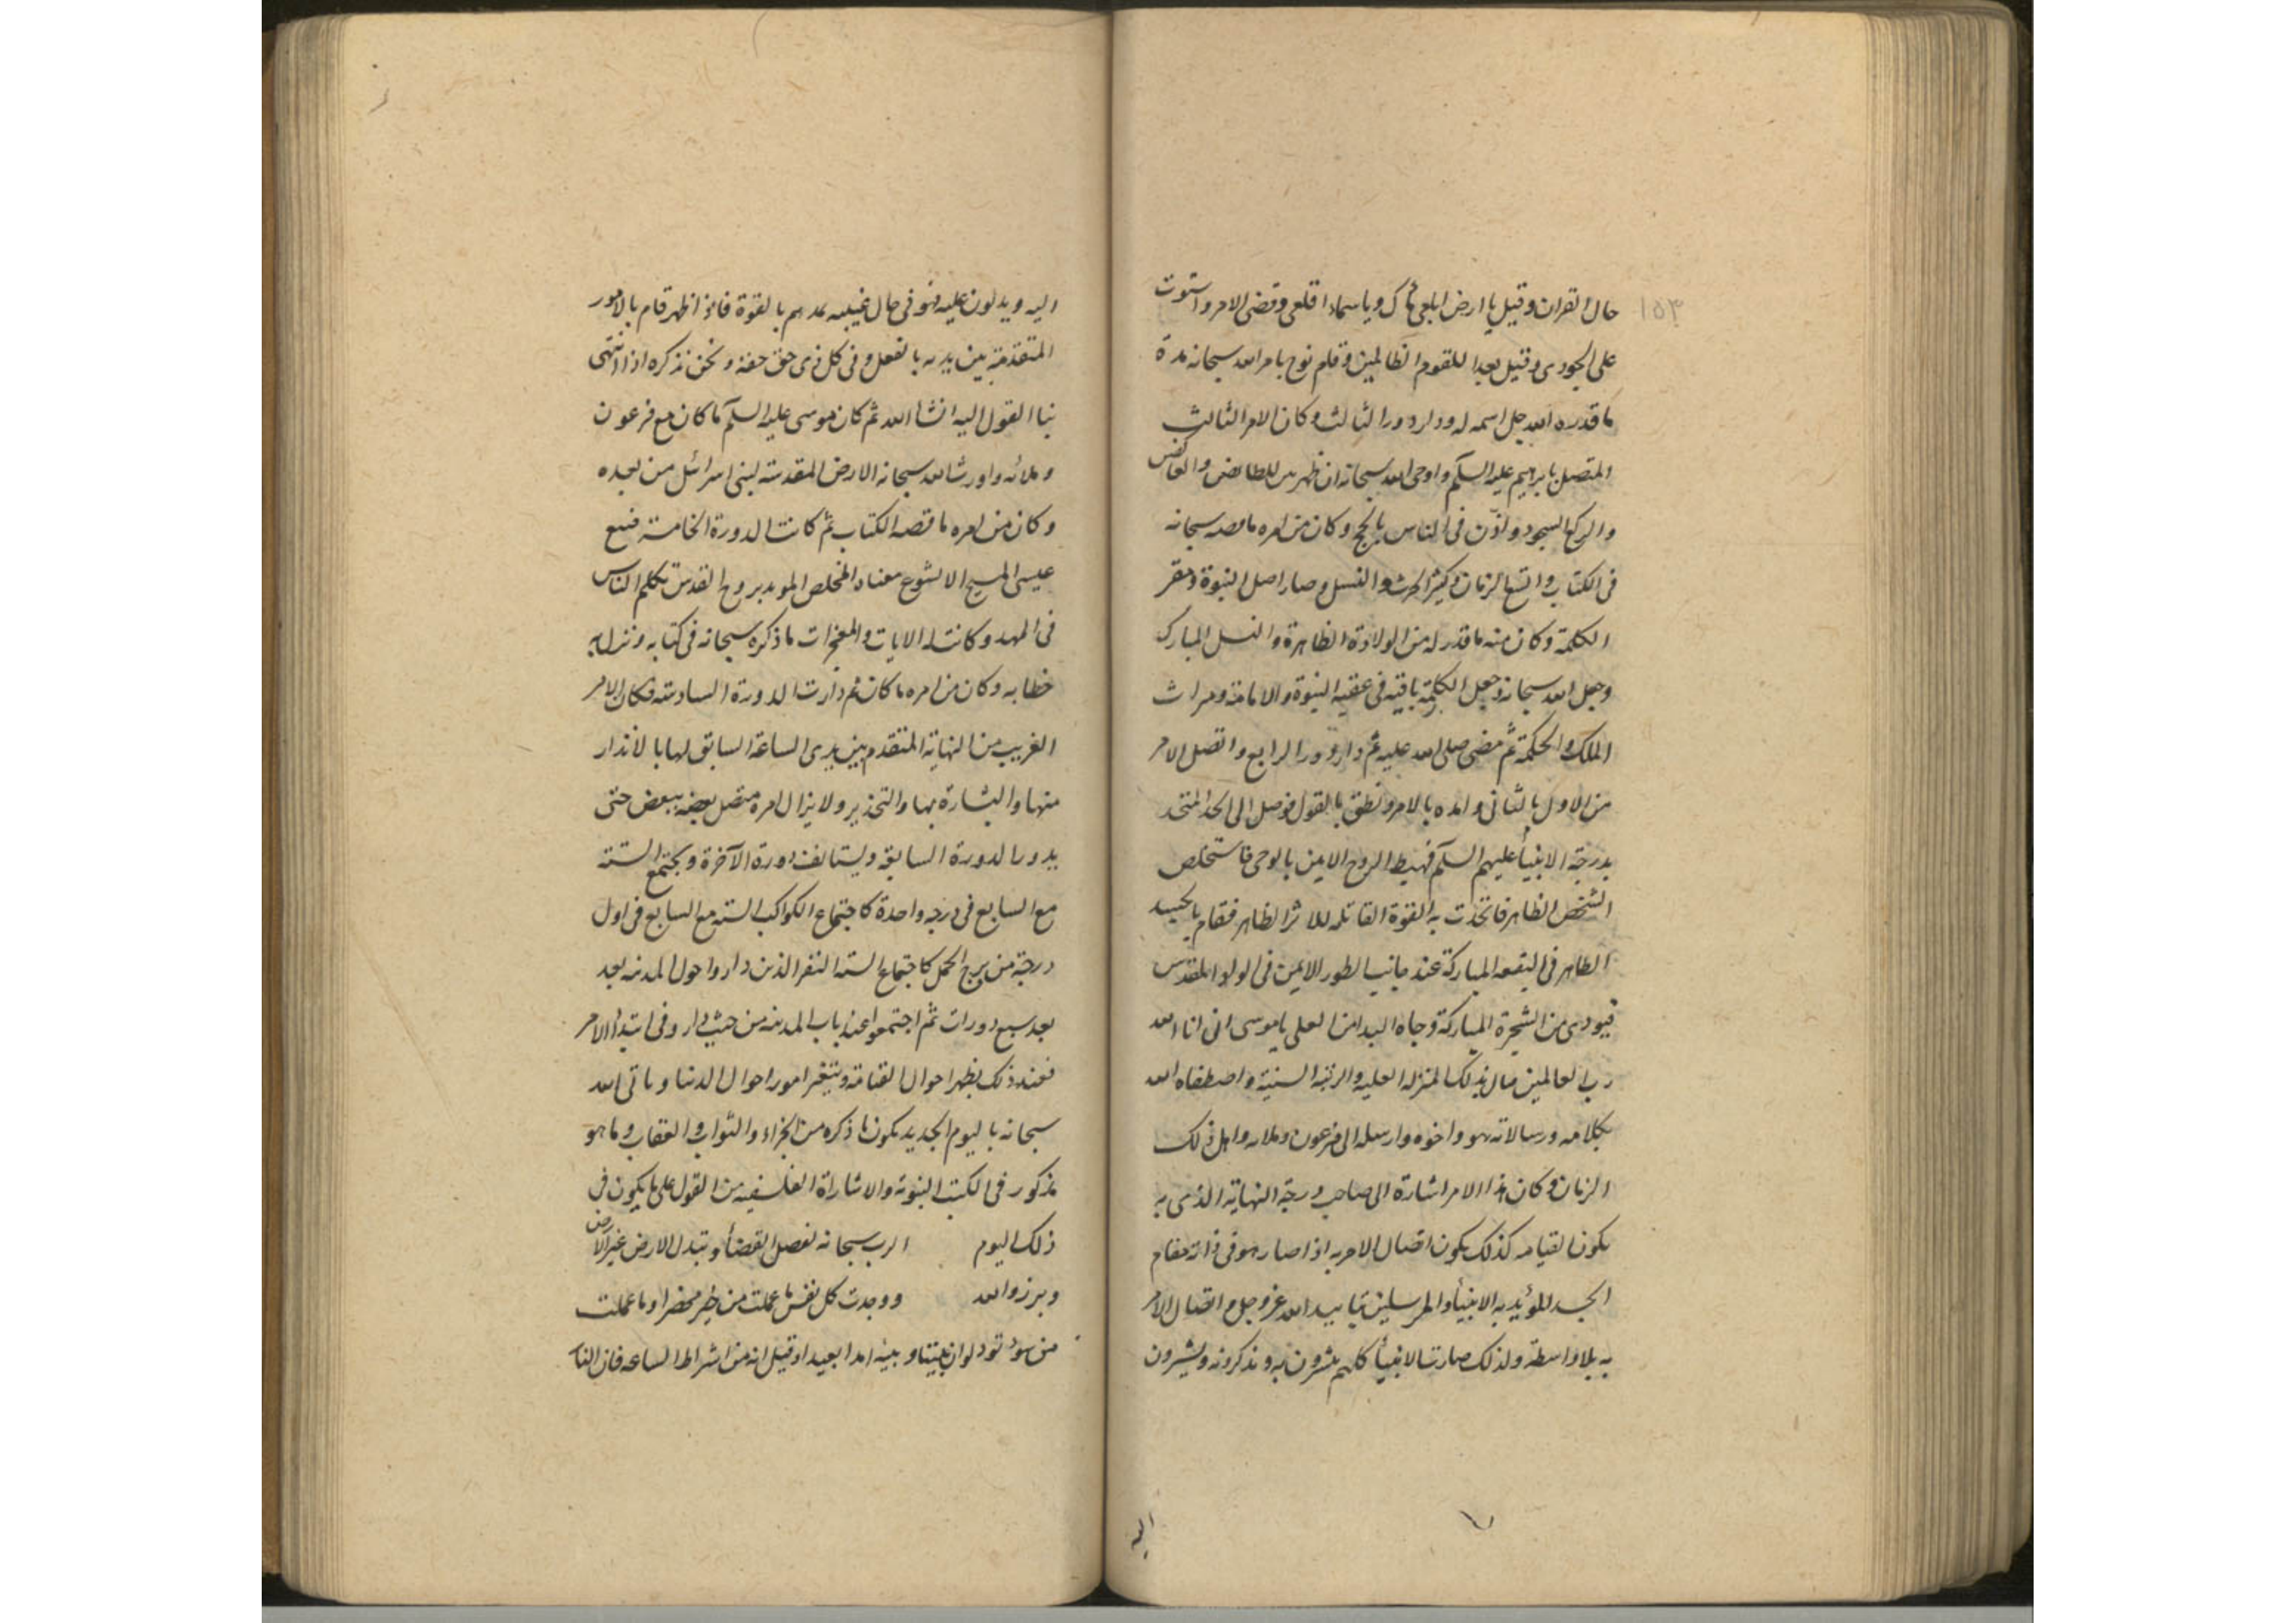 ١٥٣
حال القران وقيل يا ارض ابلعى مأك وياسماء اقلعى وقضى الامر واستوت
على الجودى وقيل بعدا للقوم الظالمين وقام نوح بامر الله سبحانه مدة
ما قدره الله جل اسمه له ودار دور الثالث وكان الامر الثالث
المتصل بابرهيم عليه السلم واوحى الله سبحانه ان طهر بيتى للطائفين والعاكفين
والركع السجود واذّن فى الناس بالحج وكان من امره ما قصه سبحانه
فى الكتاب واتسع الزمان وكثر الحرث والنسل وصار اصل النبوة ومقر
الكلمة وكان منه ما قدر له من الولادة الظاهرة والنسل المبارك
وجعل الله سبحانه وجعل الكلمة باقية فى عقبه النبوة والامامة وميراث
الملك والحكمة ثم مضى صلى الله عليه ثم دار دور الرابع واتصل الامر
من الاول بالثانى وامده بالامر ونطق بالقول فوصل الى الحد المتحد
بدرجة الانبيأ عليهم السلم فهبط الروح الامين بالوحى فاستخلص
الشخص الظاهر فاتحدت به القوة القابله للاثر الظاهر فقام بالجسد
الظاهر فى البقعه المباركة عند جانب الطور الايمن فى الواد المقدس
فنودى من الشجرة المباركة وجاه الندا من العلى ياموسى انى انا الله
رب العالمين فنال بذلك المنزله العليه والرتبة السنية واصطفاه الله
بكلامه ورسالاته هو واخوه وارسله الى فرعون وملائه واهل ذلك
الزمان وكان هذا الامر اشارة الى صاحب درجة النهاية الذى به
يكون القيامه كذلك يكون اتصال الامر به اذا صار هو فى ذاته مقام
الجسد للمؤيد به الانبيأ والمرسلين بتاييد الله عز وجل و اتصال الامر
به بلا واسطة ولذلك صارت الانبيأ كلهم يبشرون به ويذكرونه ويشيرون
اليه
اليه ويدلون عليه وهو فى حال غيبته يمدهم بالقوة فاذا ظهر قام بالامور
المتقدمة بين يديه بالفعل وفى كل ذى حق حقه ونحن نذكره اذا انتهى
بنا القول اليه انشأ الله ثم كان موسى عليه السلم ما كان مع فرعون
وملائه واورث الله سبحانه الارض المقدسة لبنى اسرائل من بعده
وكان من امره ما قصه الكتاب ثم كانت الدورة الخامسة فنبع
عيسى المسيح الايشوع معناه المخلص المويد بروح القدس تكلم الناس
فى المهد وكانت له الايات والمعجزات ما ذكره سبحانه فى كتابه ونزل به
خطابه وكان من امره ما كان ثم دارت الدورة السادسة فكان الامر
القريب من النهاية المتقدم بين يدى الساعة السابق لها بالانذار
منها والبشارة بها والتحذير ولا يزال امره متصل بعضه ببعض حتى
يدور الدورة السابعة ويستانف دورة الآخرة ويجتمع الستة
مع السابع فى درجه واحدة كاجتماع الكواكب السته مع السابع فى اول
درجة من برج الحمل كاجتماع السته النفر الذين داروا حول المدينه بعد
بعد سبع دورات ثم اجتمعوا عند باب المدينه من حيث دار وفى ابتدأ الامر
فعند ذلك يظهر احوال القيامة ويتغير امور احوال الدنيا وياتى الله
سبحانه باليوم الجديد يكون ما ذكره من الجزاء والثواب والعقاب وما هو
مذكور فى الكتب النبوية والاشاراة الفلسفيه من القول على ما يكون فى
ذلك اليوم الرب سبحانه لفصل القضأ وتبدل الارض غير الارض
وبرزوا لله ووجدت كل نفس ما عملت من خير محضرا وما عملت
من سوء تود لو ان بينها وبينه امدا بعيدا وقيل انه من اشراط الساعه فان النا